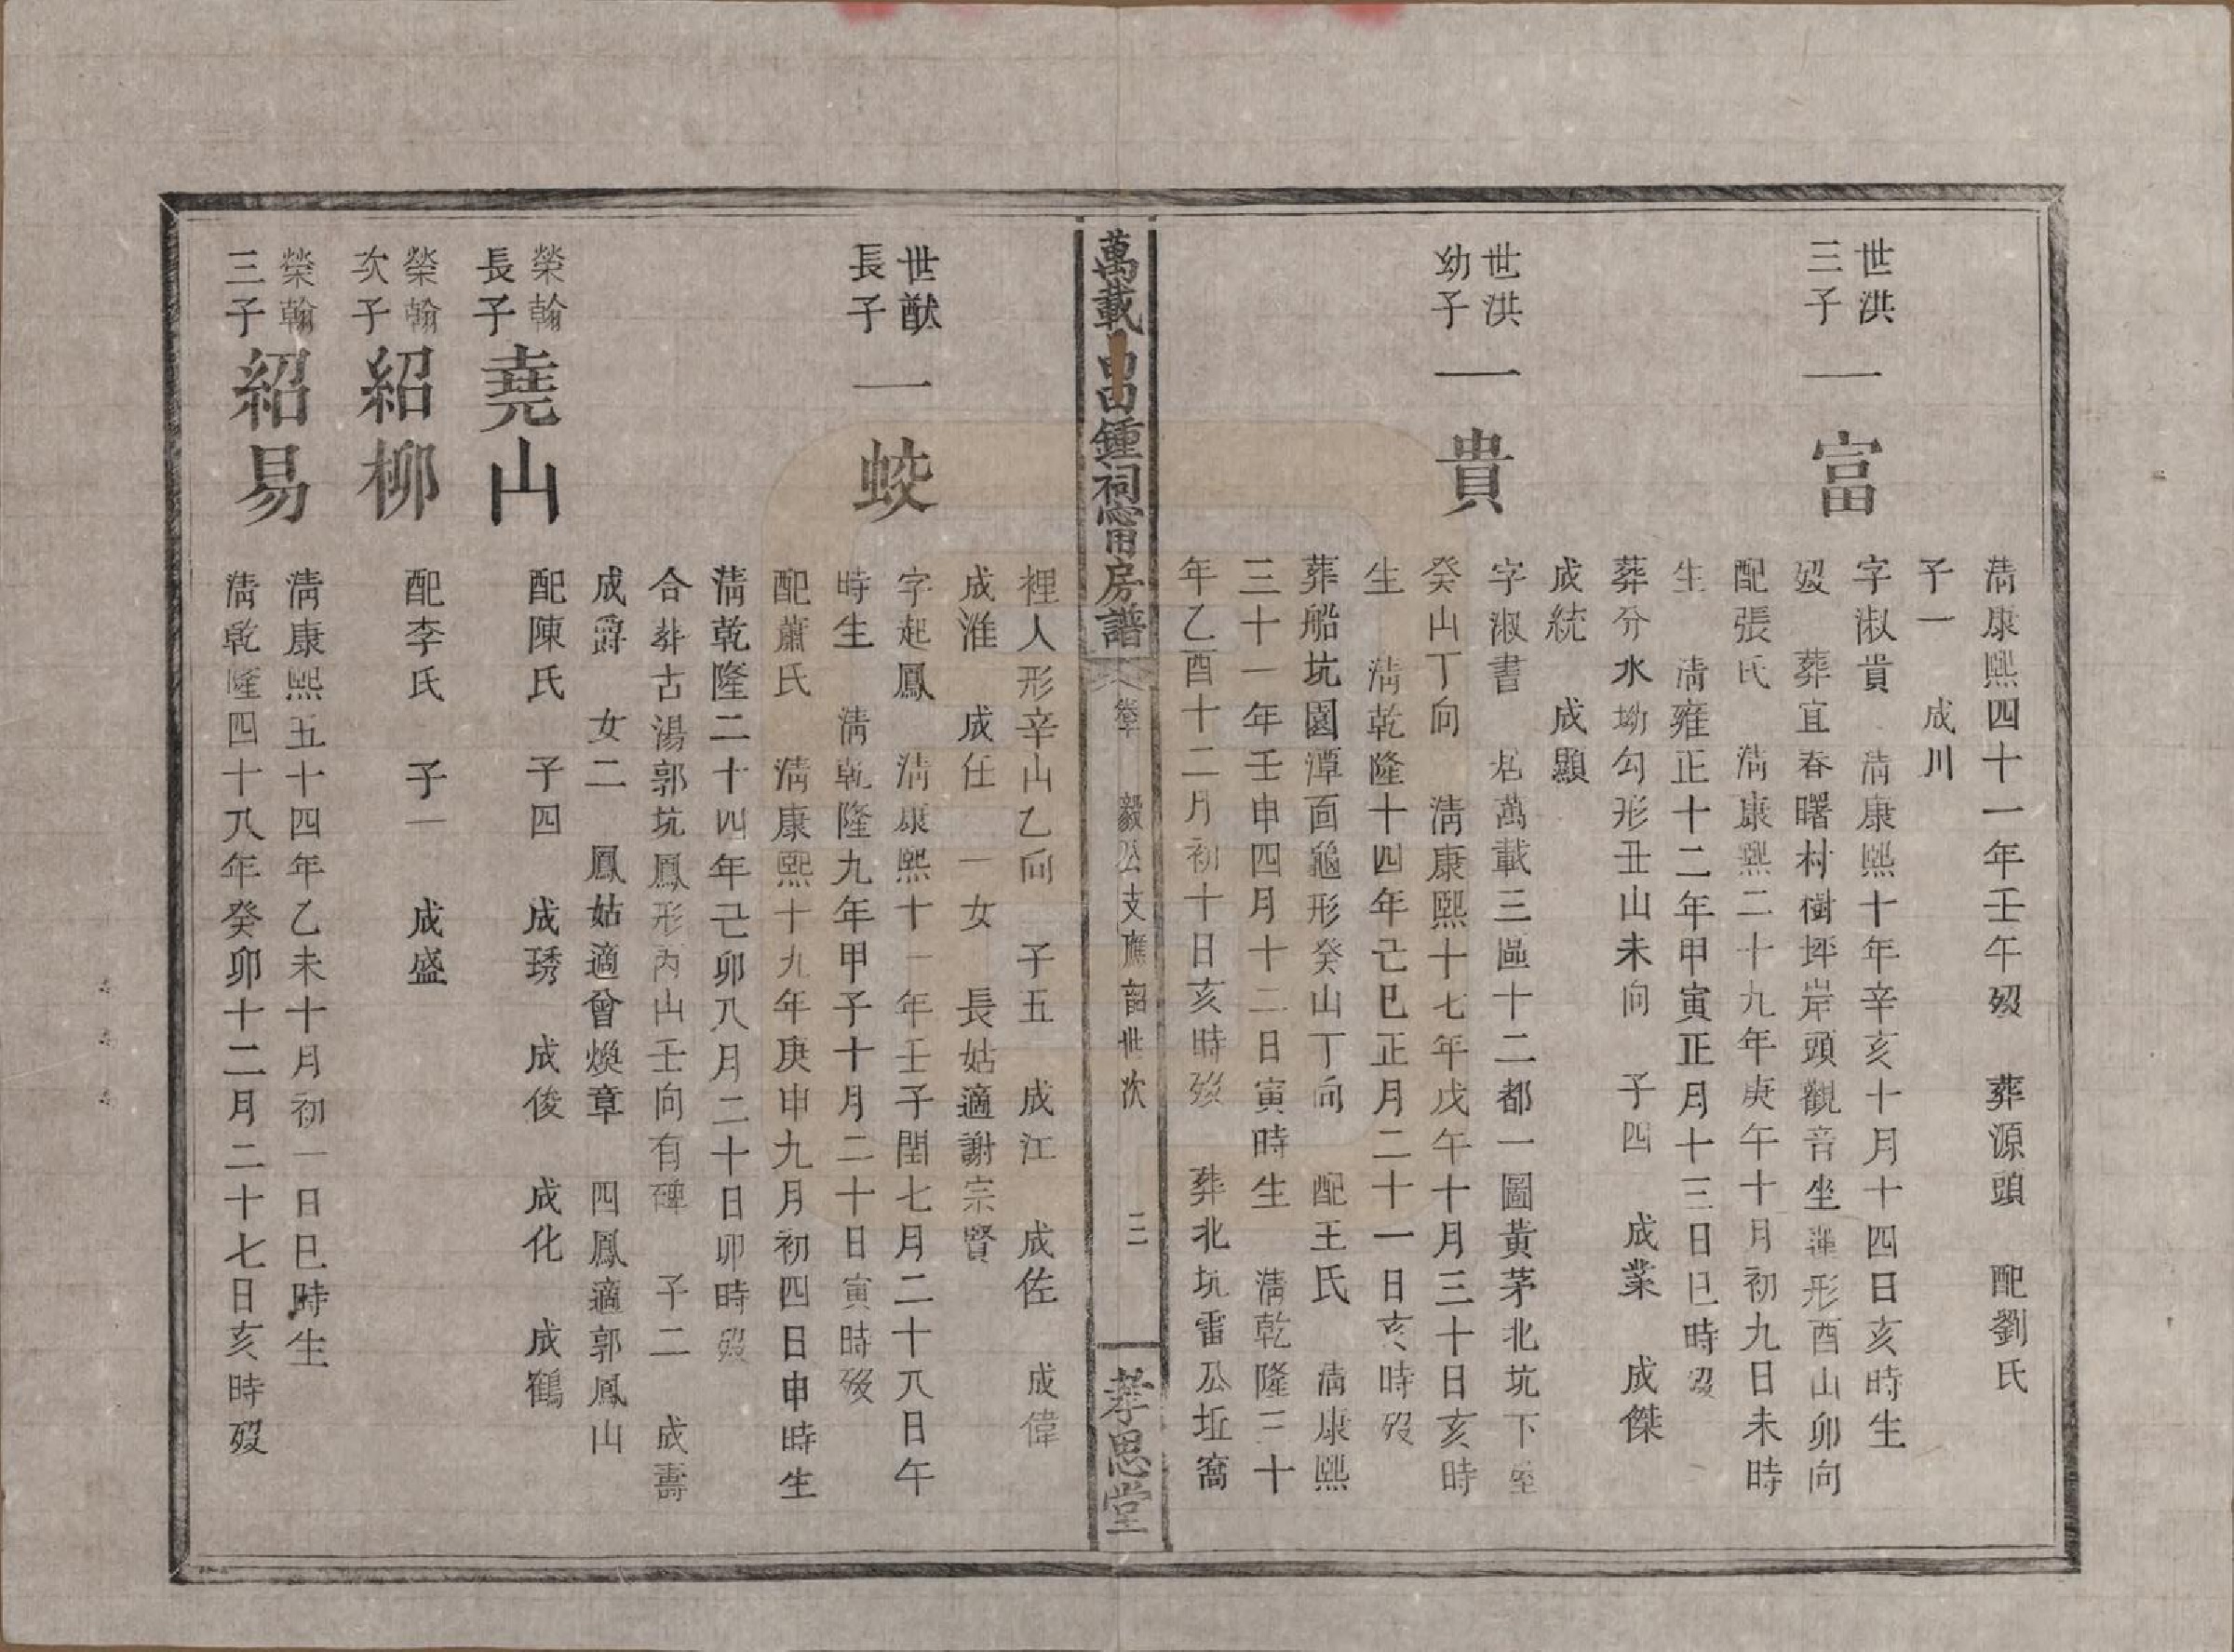 清康熙四十一年壬午歿　葬源頭　配劉氏
子一　成川
世洪三子　一富　字淑貴　清康熙十年辛亥十月十四日亥時生
歿　葬宜春曙村樹坪岸頭觀音坐蓮形酉山卯向
配張氏　清康熙二十九年庚午十月初九日未時
生　清雍正十二年甲寅正月十三日巳時歿
葬分水坳勾形丑山未向　子四　成業　成傑
成統　成顯
世洪幼子　一貴　字淑書　居萬載三區十二都一圖黃茅北坑下
癸山丁向　清康熙十七年戊午十月三十日亥時
生　清乾隆十四年己巳正月二十一日亥時歿
葬船坑園潭面龜形癸山丁向　配王氏　清康熙
三十一年壬申四月十二日寅時生　清乾隆三十
年乙酉十二月初十日亥時歿　葬北坑雷公坵窩
萬載 田鍾祠 房譜　卷　毅公支應韶世次　三　孝思堂
裡人形辛山乙向　子五　成江　成佐　成偉
成淮　成任　一女　長姑適謝宗賢
世猷長子　一蛟　字起鳳　清康熙十一年壬子閏七月二十八日午
時生　清乾隆九年甲子十月二十日寅時歿
配蕭氏　清康熙十九年庚申九月初四日申時生
清乾隆二十四年己卯八月二十日卯時歿
合葬古湯郭坑鳳形丙山壬向有碑　子二　成壽
成爵　女二　鳳姑適曾煥章　四鳳適郭鳳山
榮翰長子　堯山　配陳氏　子四　成琇　成俊　成化　成鶴
榮翰次子　紹柳　配李氏　子一　成盛
榮翰三子　紹易　清康熙五十四年乙未十月初一日巳時生
清乾隆四十八年癸卯十二月二十七日亥時歿